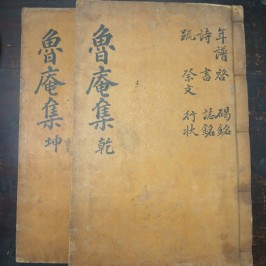 年譜 啓 碣銘
詩 書 誌銘
䟽 祭文 行状
魯庵集 乾
魯庵集 坤